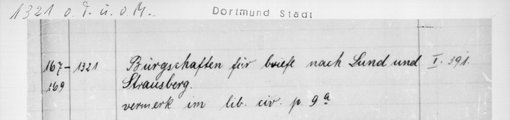 1321 o. T. u. o. M.
Dortmund Stadt
167- 1321 Bürgschaften für briefe nach Lund und I. 391.
169 Strausberg.
vermerk im lib. civ. p. 9a